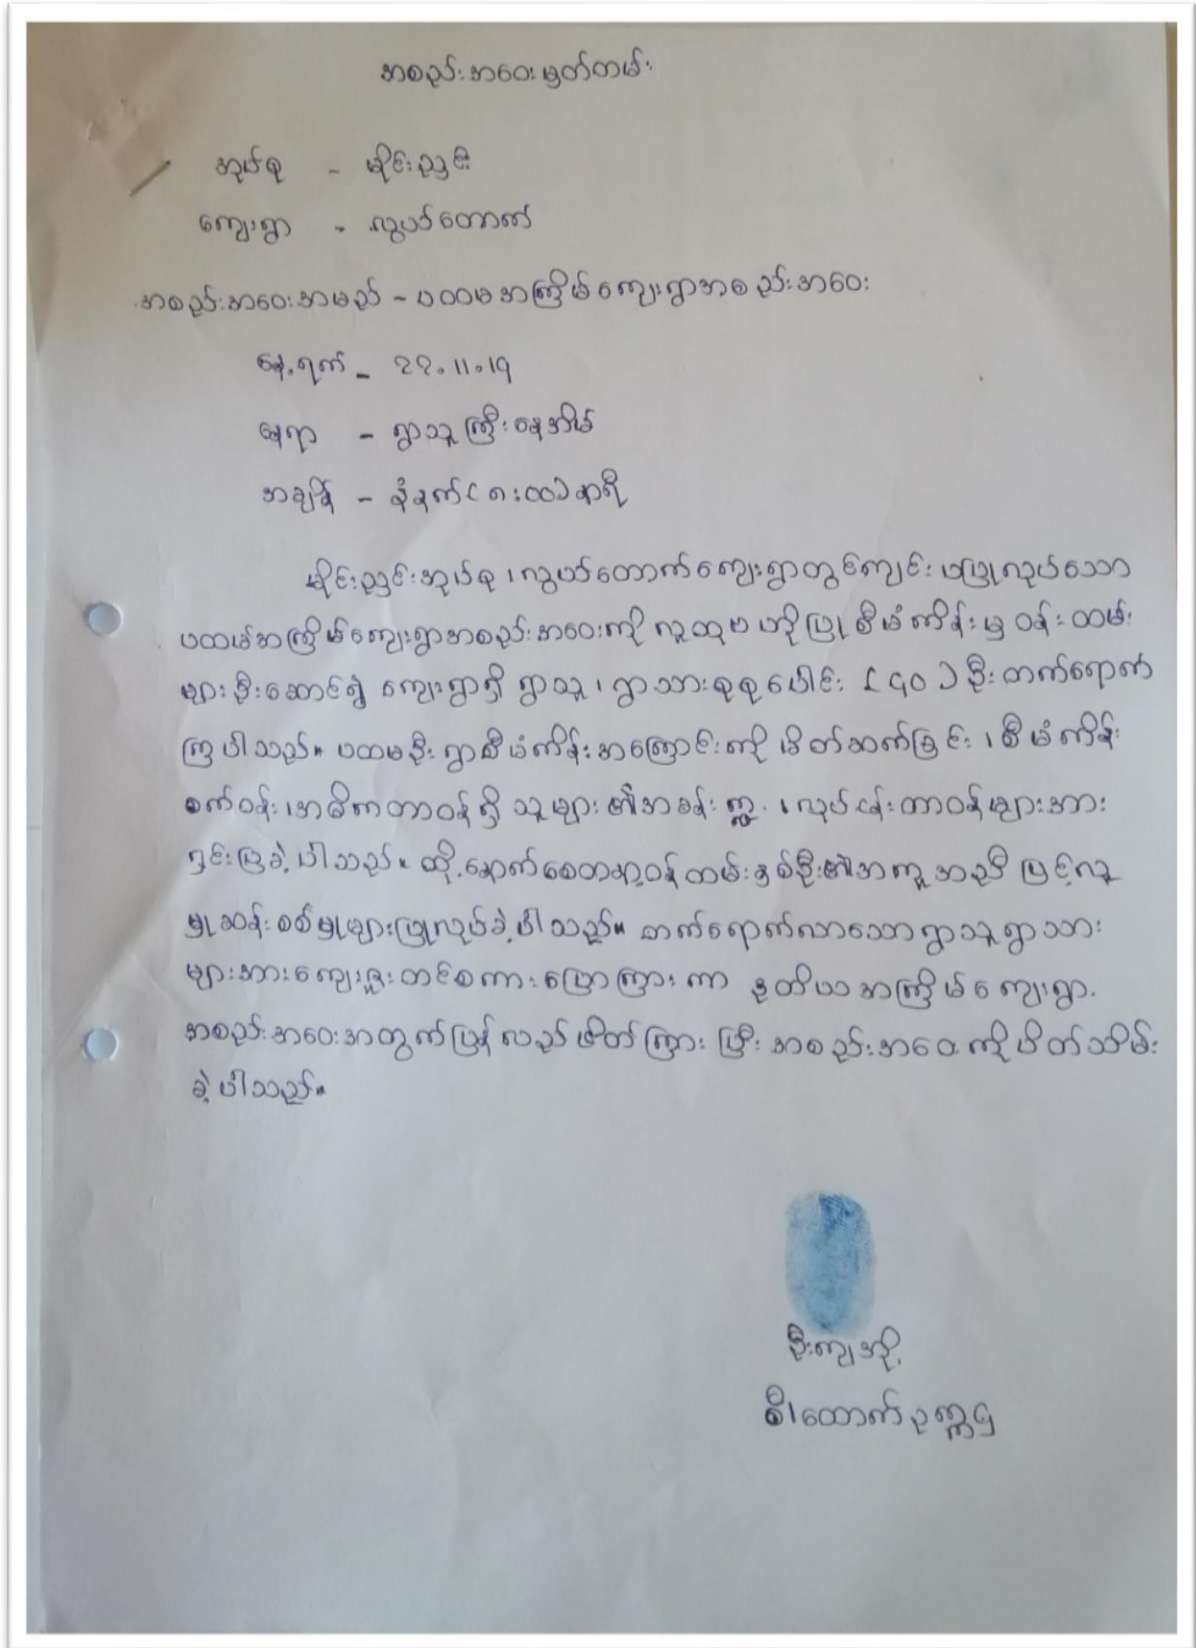 အစည်းအဝေးမှတ်တမ်း
အုပ်စု - မိုင်းညှင်း
ကျေးရွာ - လွယ်တောက်
အစည်းအဝေးအမည် - ပထမအကြိမ်ကျေးရွာအစည်းအဝေး
နေ့ရက် - ၂၂.၁၁.၁၅
နေရာ - ရွာသူကြီးနေအိမ်
အချိန် - နံနက်(၈:၀၀)နာရီ
မိုင်းညှင်းအုပ်စု၊လွယ်တောက်ကျေးရွာတွင်ကျင်းပပြုလုပ်သော
ပထမအကြိမ်ကျေးရွာအစည်းအဝေးကို လူထုဗဟိုပြုစီမံကိန်းမှ ဝန်ထမ်း
များဦးဆောင်၍ ကျေးရွာရှိ ရွာသူ၊ ရွာသားစုစုပေါင်း (၄၀)ဦးတက်ရောက်
ကြပါသည်။ ပထမဦးစွာစီမံကိန်းအကြောင်းကို မိတ်ဆက်ခြင်း၊ စီမံကိန်း
စက်ဝန်း၊အဓိကတာဝန်ရှိသူများ၏အခန်းဏ္ဍ၊လုပ်ငန်းတာဝန်များအား
ရှင်းပြခဲ့ပါသည်။ ထို့နောက်စေတနာ့ဝန်ထမ်းနှစ်ဦး၏အကူအညီဖြင့်လူ
မှုဆန်းစစ်မှုများပြုလုပ်ခဲ့ပါသည်။ တက်ရောက်လာသောရွာသူရွာသား
များအားကျေးဇူးတင်စကားပြောကြားကာ ဒုတိယအကြိမ်ကျေးရွာ
အစည်းအဝေးအတွက်ပြန်လည်ဖိတ်ကြားပြီး အစည်းအဝေးကိုပိတ်သိမ်း
ခဲ့ပါသည်။
ဦးကျအို့
စီ၊ထောက်ဥက္ကဌ